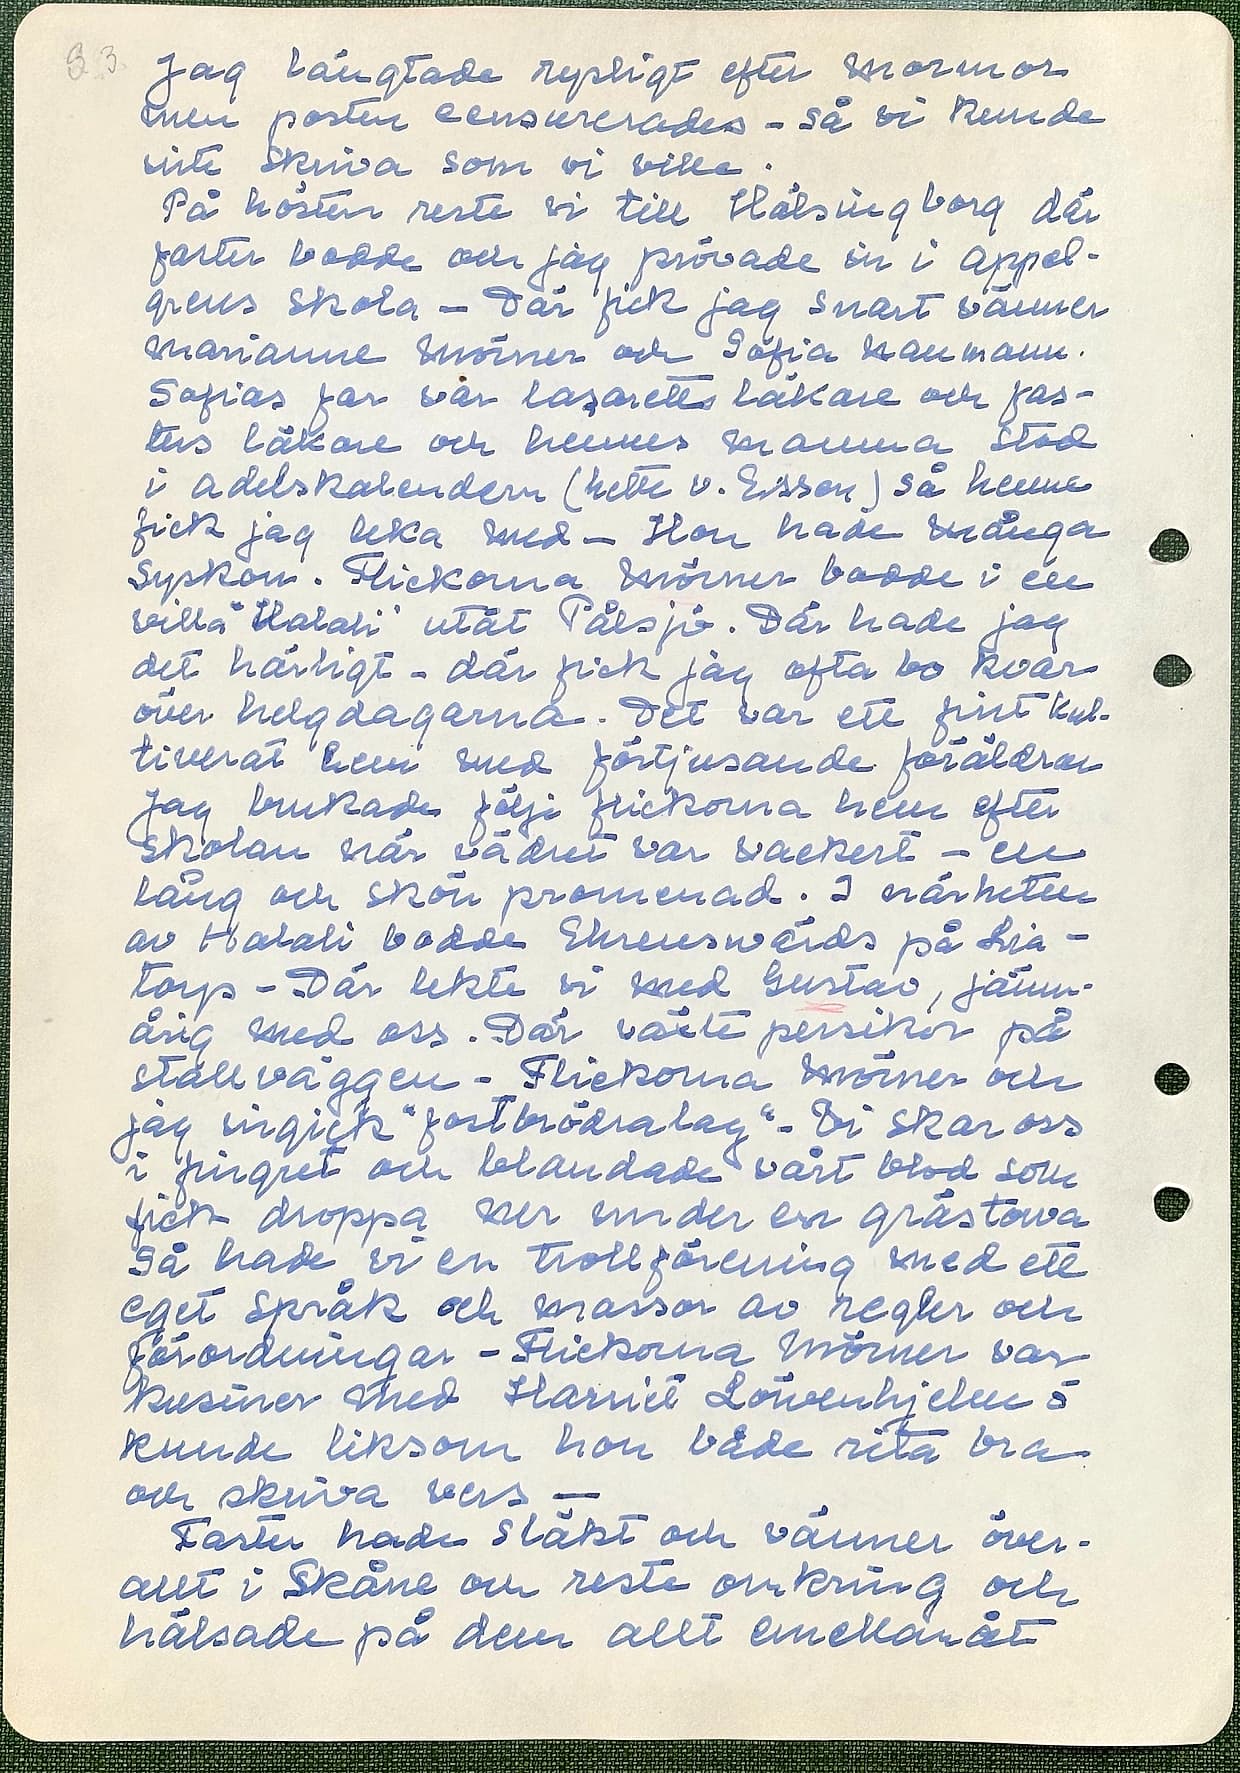 93.
Jag längtade rysligt efter mormor
men posten censurerades - så vi kunde
inte skriva som vi ville.
På hösten reste vi till Hälsingborg där
faster bodde och jag prövade in i Appel-
grens skola - Där fick jag snart vänner
Marianne Mörner och Sofia Naumann.
Sofias far var lasarettsläkare och fas-
ters läkare och hennes mamma stod
i adelskalendern (hette v. Essen) så henne
fick jag leka med - Hon hade många
syskon. Flickorna Mörner bodde i en
villa "Halali" utåt Pålsjö. Där hade jag
det härligt - där fick jag ofta bo kvar
över helgdagarna. Det var ett fint kul-
tiverat hem med förtjusande föräldrar
Jag brukade följa flickorna hem efter
skolan när vädret var vackert - en
lång och skön promenad. I närheten
av Halali bodde Ehrensvärds på Lia-
torp - Där lekte vi med Gustav, jämn-
årig med oss. Där växte persikor på
stallväggen - Flickorna Mörner och
jag ingick "fostbrödralag" - Vi skar oss
i fingret och blandade vårt blod som
fick droppa ner under en grästorva
Så hade vi en trollförening med ett
eget språk och massor av regler och
förordningar - Flickorna Mörner var
kusiner med Harriet Löwenhjelm o
kunde liksom hon både rita bra
och skriva vers -
Faster hade släkt och vänner över-
allt i Skåne och reste omkring och
hälsade på dem allt emellanåt